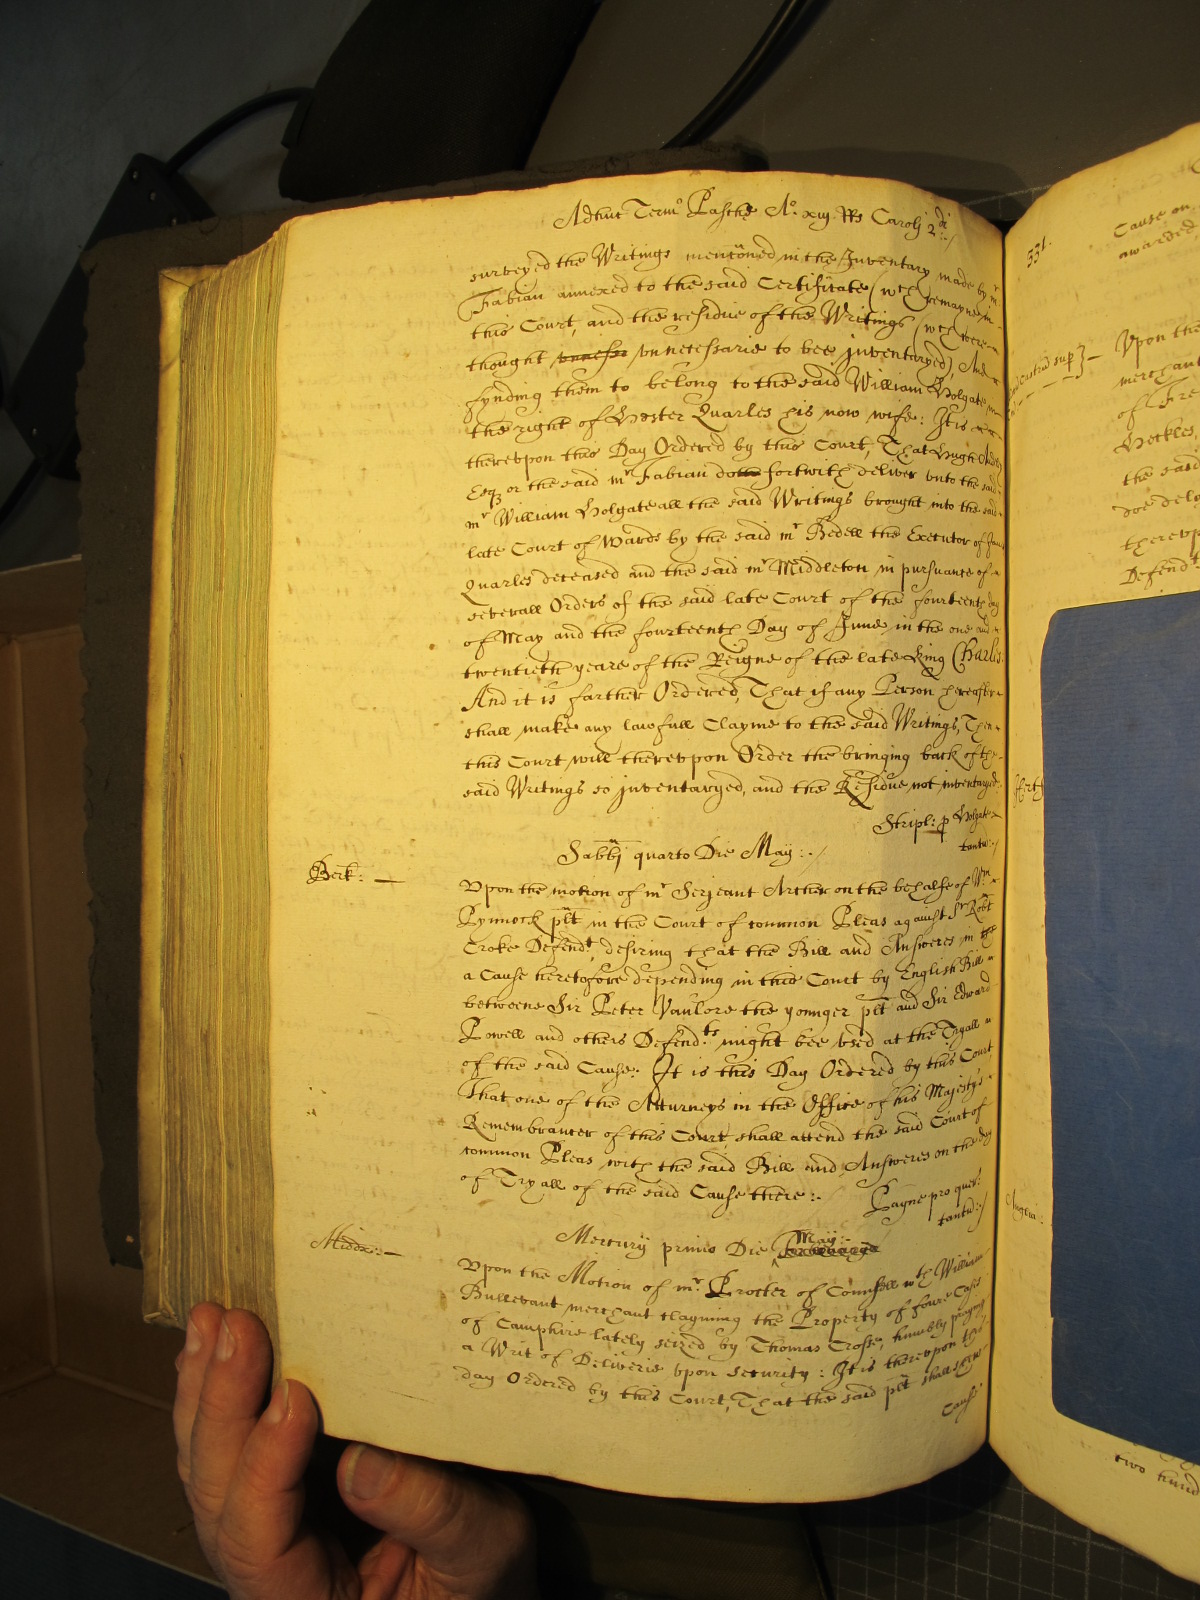 Adhuc Term° Pasche A°. xiij. R's Caroli 2di:/
surveyed the Writings mencõned in the Inventary made by mr.
Fabian annexed to the said Certificate (wch remayne in
this Court, and the residue of the Writings (wch were
thought unnecessarie to bee inventaryed), And
fynding them to belong to the said William Holgate in
the right of Hester Quarles his now wife: It is
thereupon this Day Ordered by this Court, That Hugh
Esqr or the said mr Fabian doe forthwith deliver unto the said
mr William Holgate all the said Writings brought into the said
late Court of Wards by the said mr Bedell the Executor of
Quarles deceased and the said mr Middleton in pursuance of
severall Orders of the said late Court of the fourteenth day
of May and the fourteenth Day of June in the one and
twentieth yeare of the Reigne of the late King Charles
And it is farther Ordered, That if any Person hereafter
shall make any lawfull Clayme to the said Writings, Then
this Court will thereupon Order the bringing back of the
said Writings so inventaryed, and the Residue not inventaryed
Stripl: p Holgate
tantu:/
Sabbi quarto Die May:./
Berk:
Upon the motion of mr Serjeant Archer on the behalfe of Wm
Pynnock plt in the Court of common Pleas against Sr Robt
Croke Defendt, desiring that the Bill and Answeres in
a Cause heretofore depending in this Court by English Bill
betweene Sir Peter Vanlore the younger plt and Sir Edward
Powell and others Defendts might bee used at the Tryall
of the said Cause: It is this Day Ordered by this Court
That one of the Atturneys in the Office of his Majestys
Remembrancer of this Court shall attend the said Court of
common Pleas with the said Bill and Answeres on the day
of Tryall of the said Cause there:.
Payne pro quer:
tantu:/
Middx:
Mercurij primo Die May:
Upon the Motion of mr. Procter of Counsell wth William
Bullevant merchant clayming the Property of foure Cases
of Camphire lately seized by Thomas Crosse, humbly praying
a Writ of Deliverie upon security: It is thereupon this
day Ordered by this Court, That the said plt shall shew
Cause
331.
Cause on
awarded
Upon the
merchant
of Fre
Heckles,
the said
doe delo
thereup
Defendt
Hertf
Anglia:
two hund